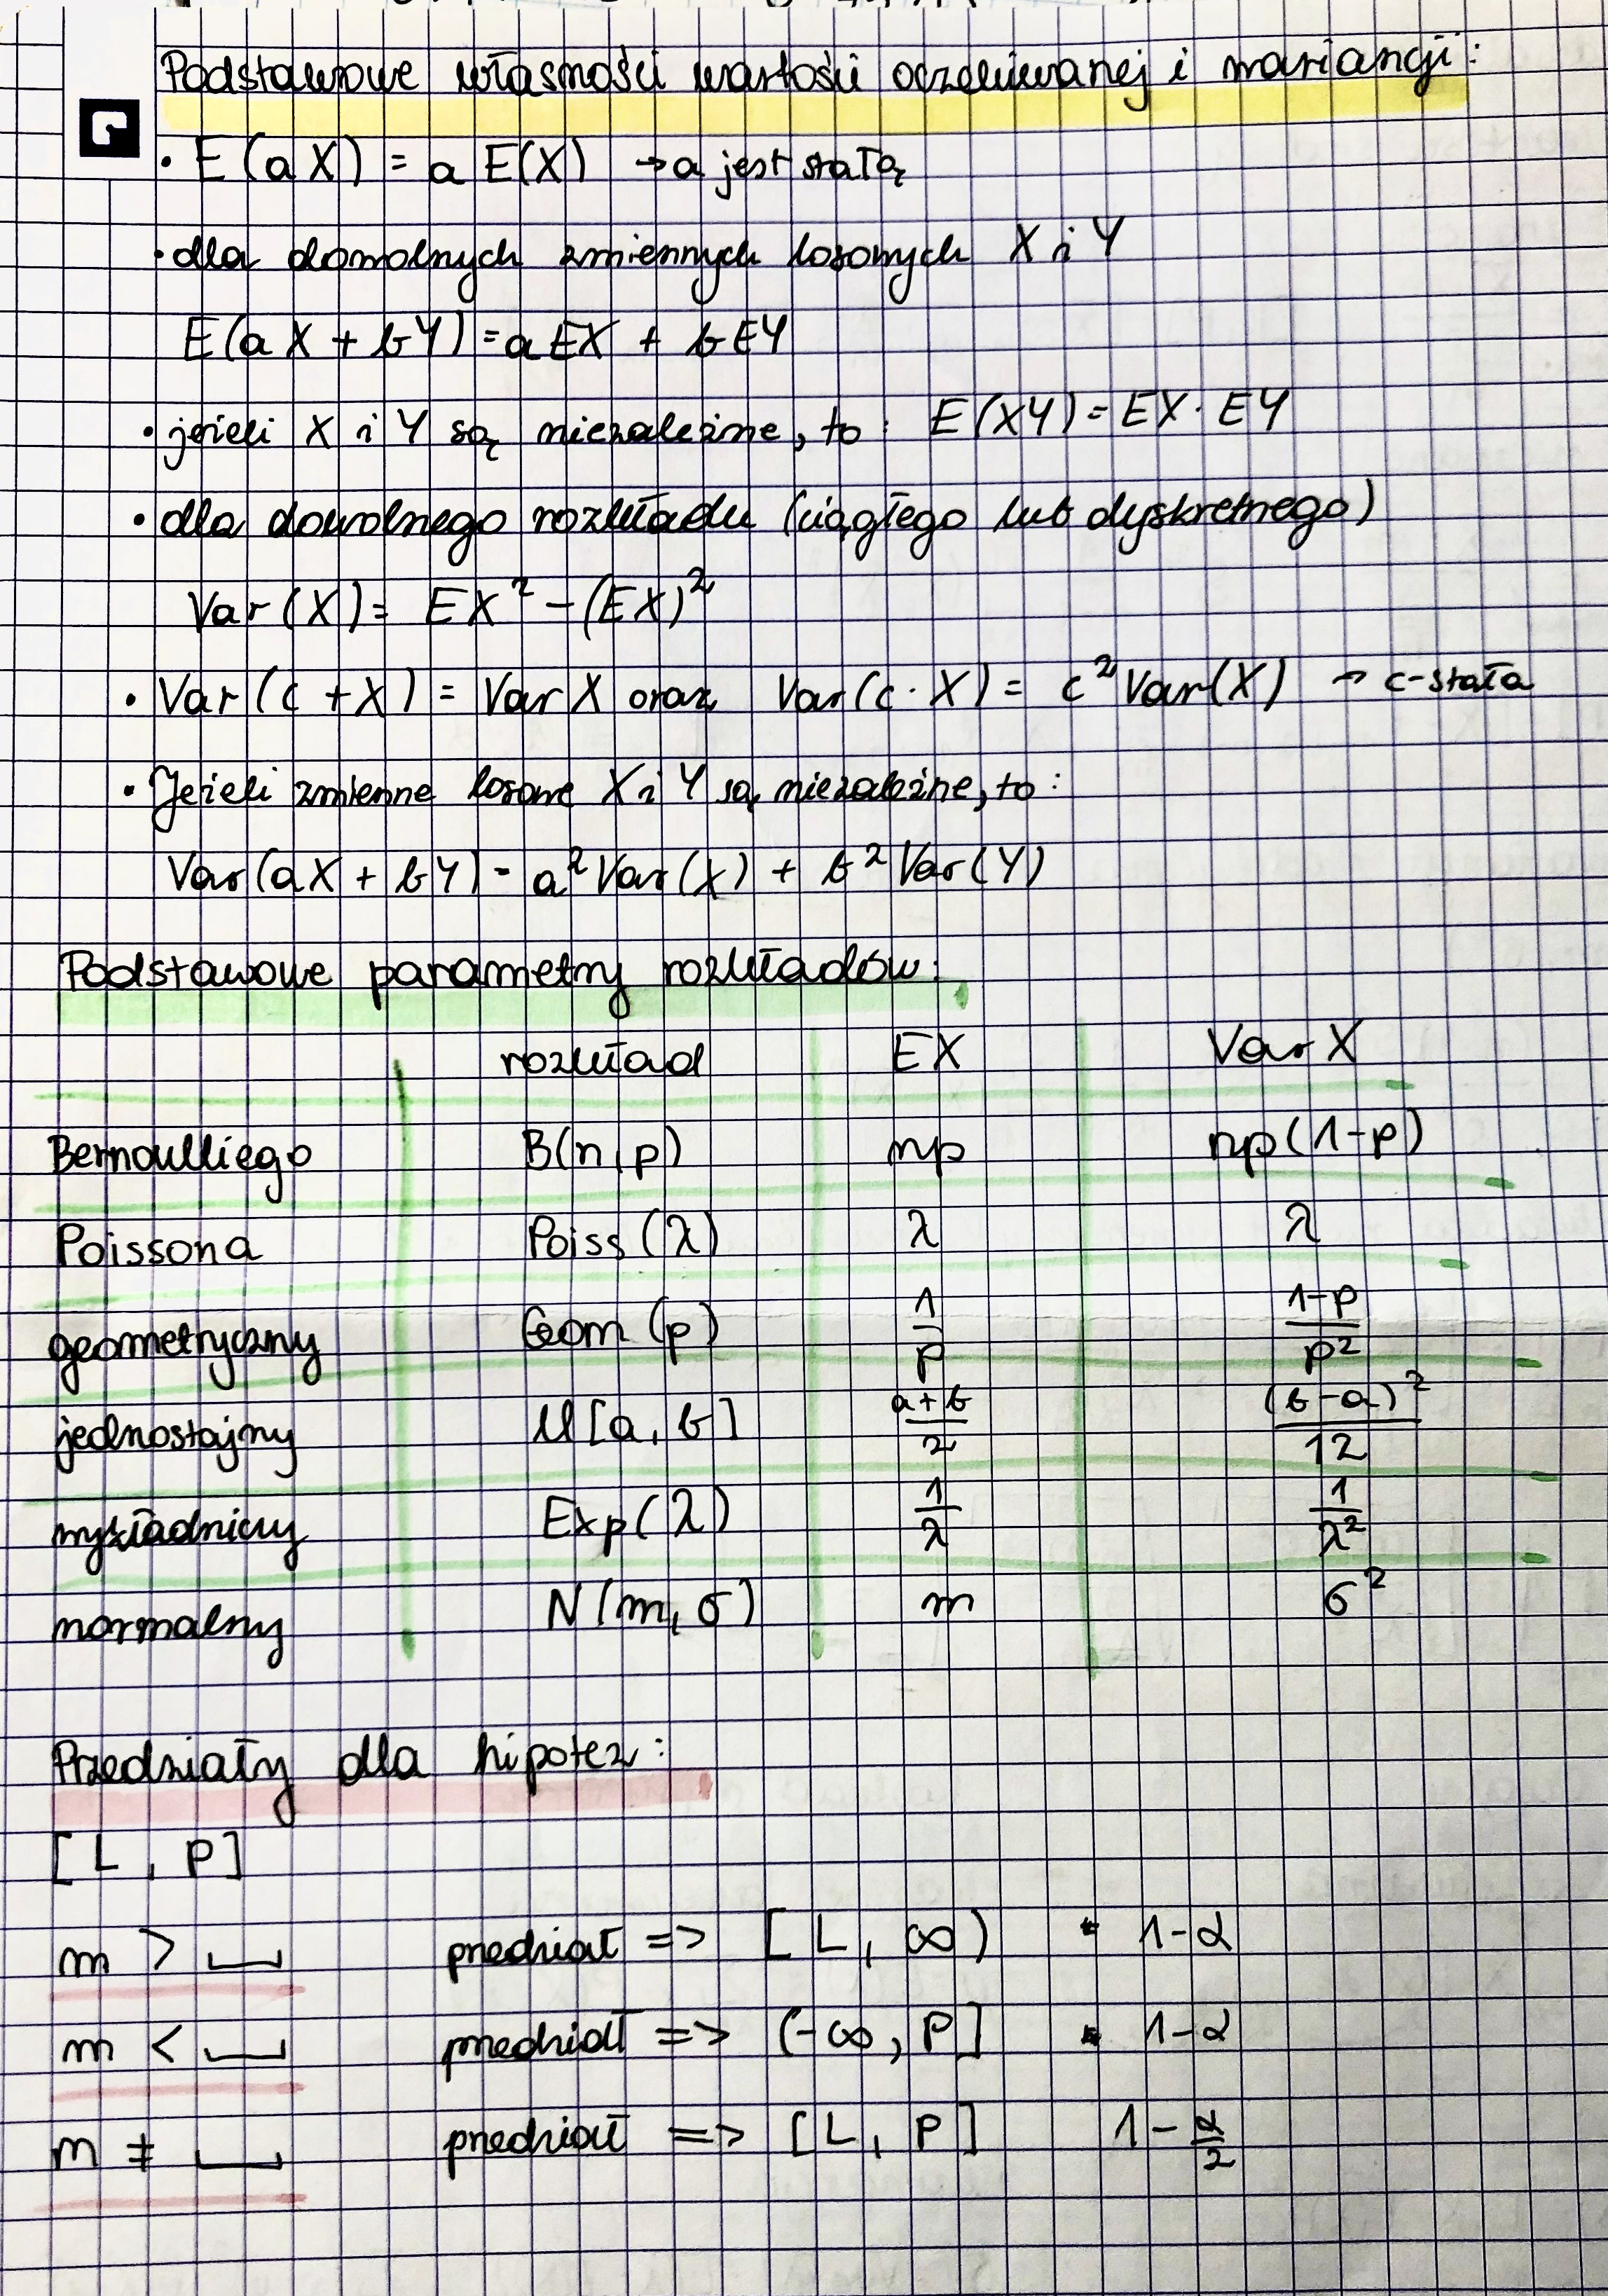 Podstawowe własności wartości oczekiwanej i wariancji:
• E(aX) = a E(X) → a jest stałą
• dla dowolnych zmiennych losowych X i Y
E(aX + bY) = aEX + bEY
• jeżeli X i Y są niezależne, to: E(XY) = EX · EY
• dla dowolnego rozkładu (ciągłego lub dyskretnego)
Var(X) = EX² - (EX)²
• Var(c + X) = Var X oraz Var(c · X) = c² Var(X) → c-stała
• Jeżeli zmienne losowe X i Y są niezależne, to:
Var(aX + bY) = a² Var(X) + b² Var(Y)
Podstawowe parametry rozkładów:
rozkład EX Var X
Bernoulliego B(n, p) np np(1-p)
Poissona Poiss(λ) λ λ
geometryczny Geom(p) 1/p (1-p)/p²
jednostajny U[a, b] (a+b)/2 (b-a)²/12
wykładniczy Exp(λ) 1/λ 1/λ²
normalny N(m, σ) m σ²
Przedziały dla hipotez:
[L, P]
m > ⎵ przedział => [L, ∞) • 1-α
m < ⎵ przedział => (-∞, P] • 1-α
m ≠ ⎵ przedział => [L, P] 1 - α/2